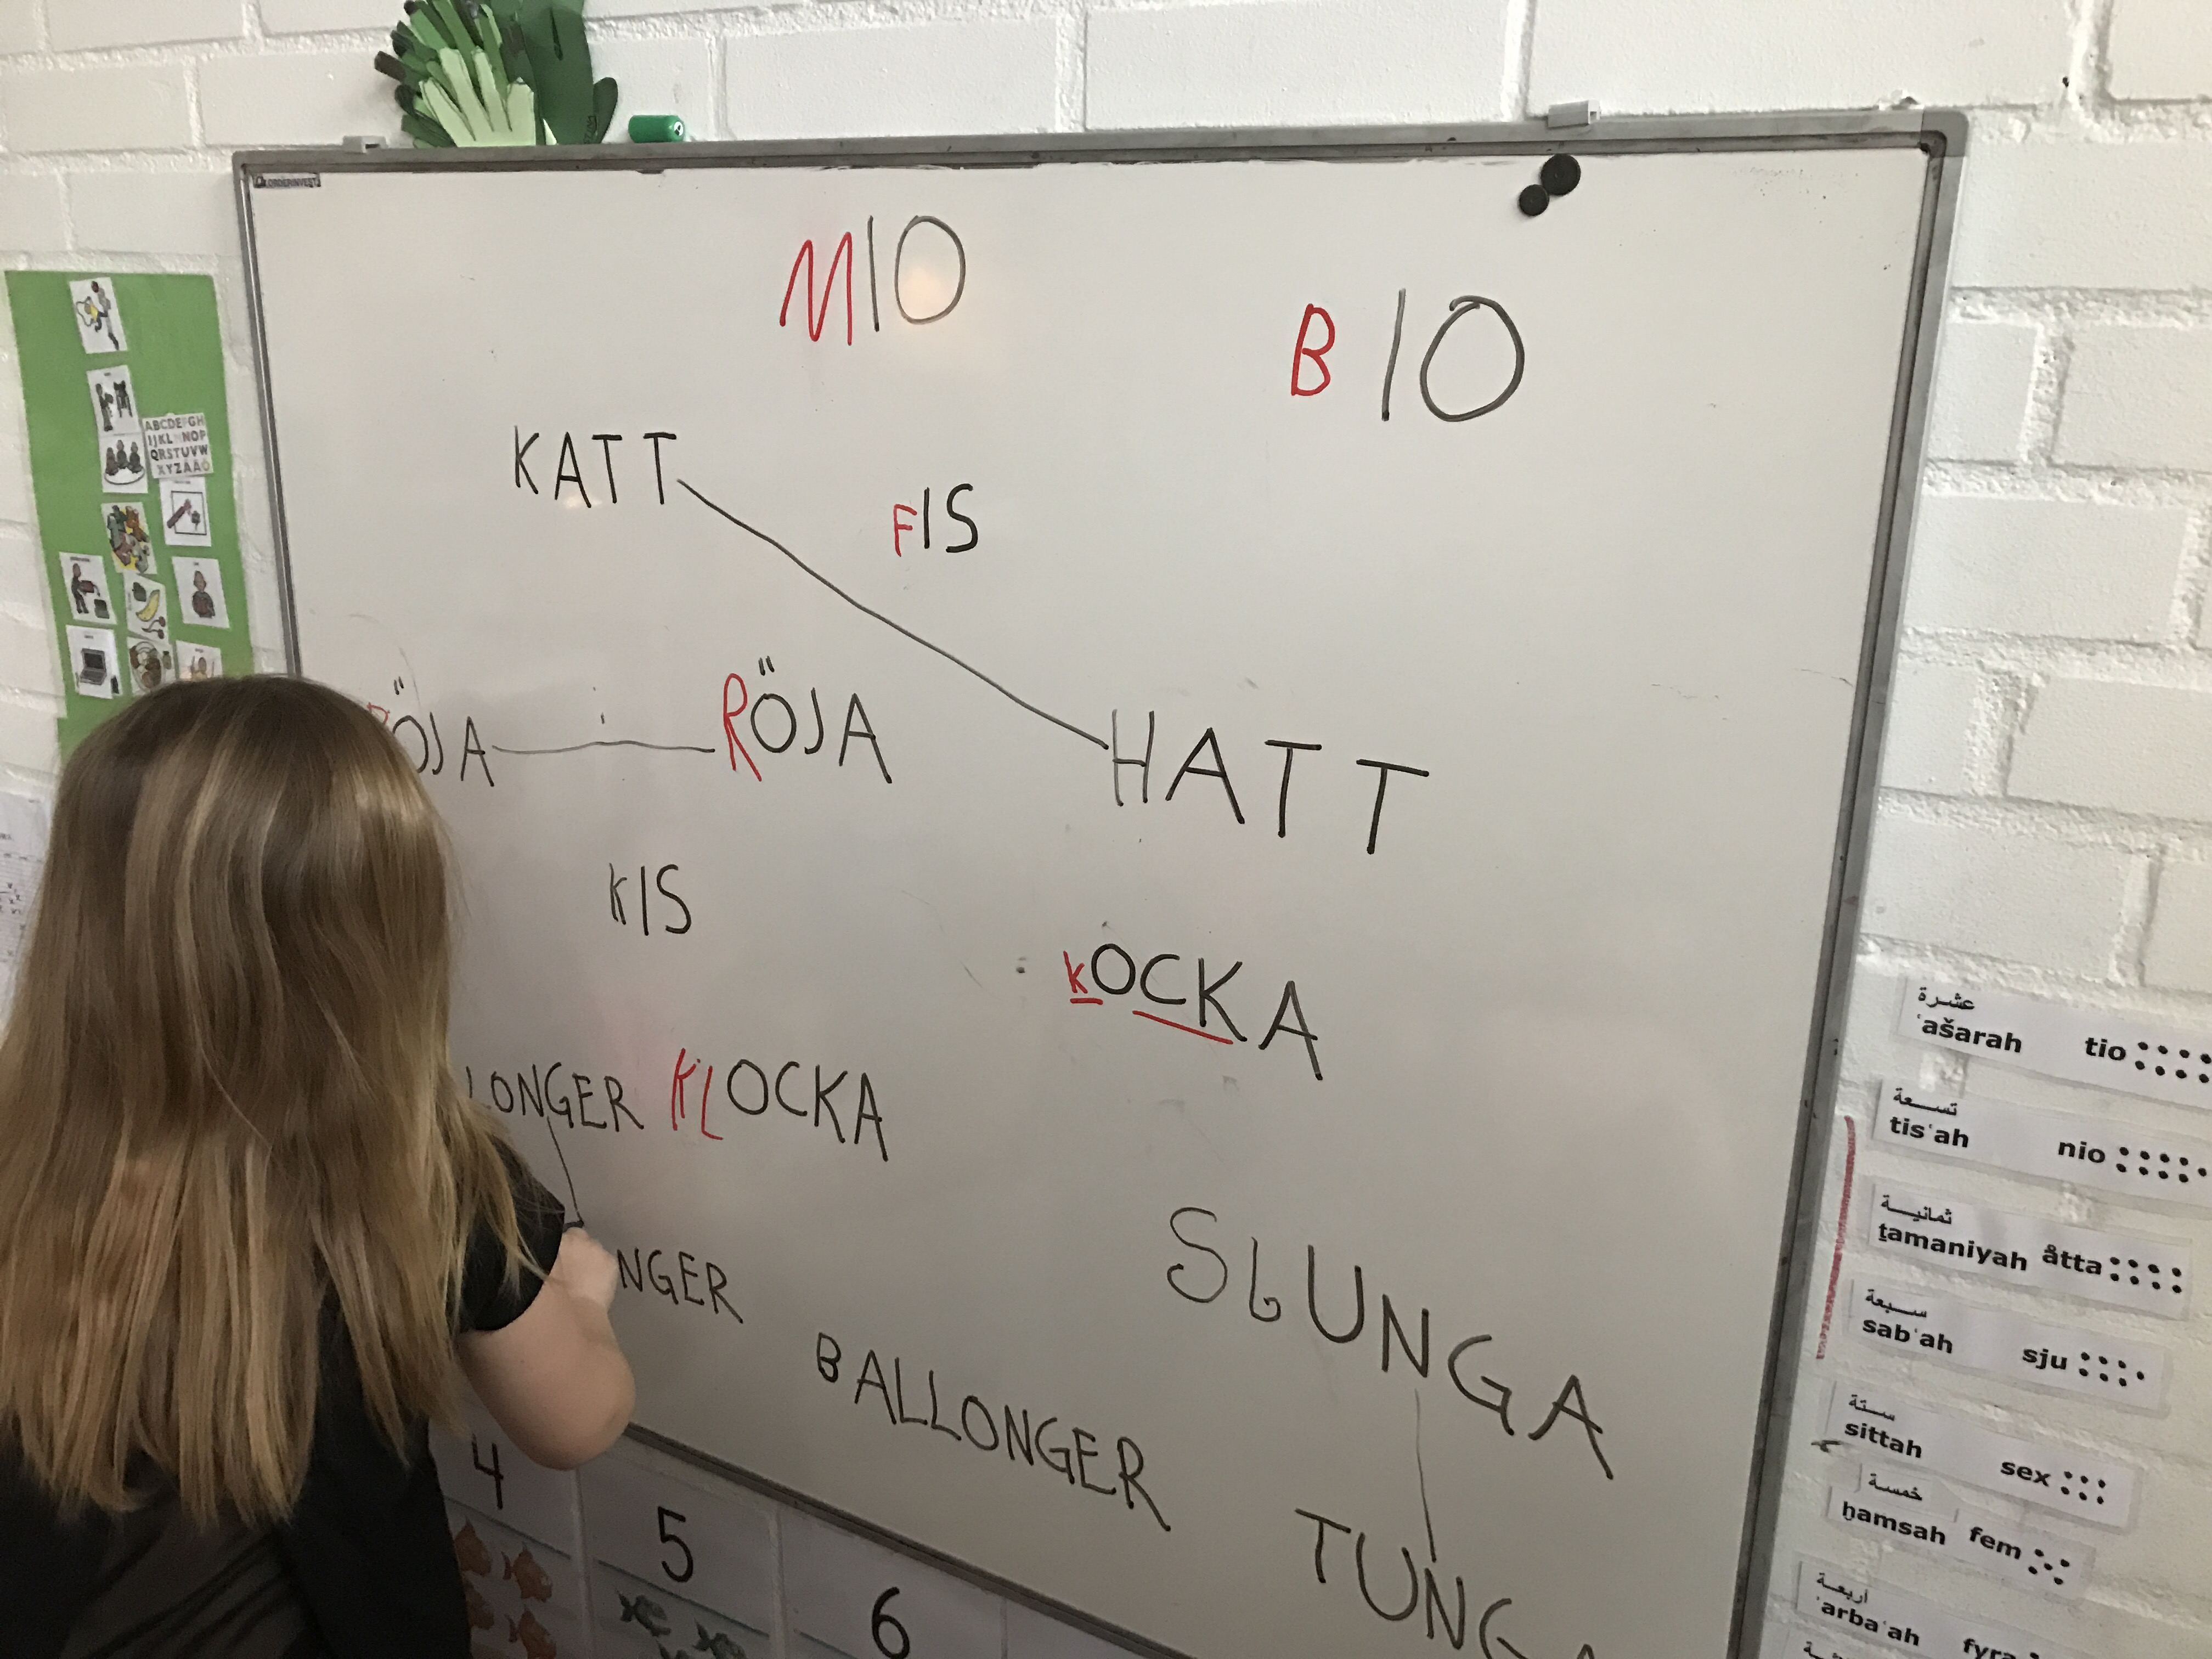 MIO
BIO
KATT
FIS
ÖJA
RÖJA
HATT
KIS
KOCKA
LONGER
KLOCKA
NGER
SLUNGA
BALLONGER
TUNGA
ABCDEFGH
IJKLMNOP
QRSTUVW
XYZÅÄÖ
4
5
6
عشرة
ʿašarah tio
تسعة
tisʿah nio
ثمانية
ṯamaniyah åtta
سبعة
sabʿah sju
ستة
sittah sex
خمسة
ḫamsah fem
اربعة
ʾarbaʿah fyra